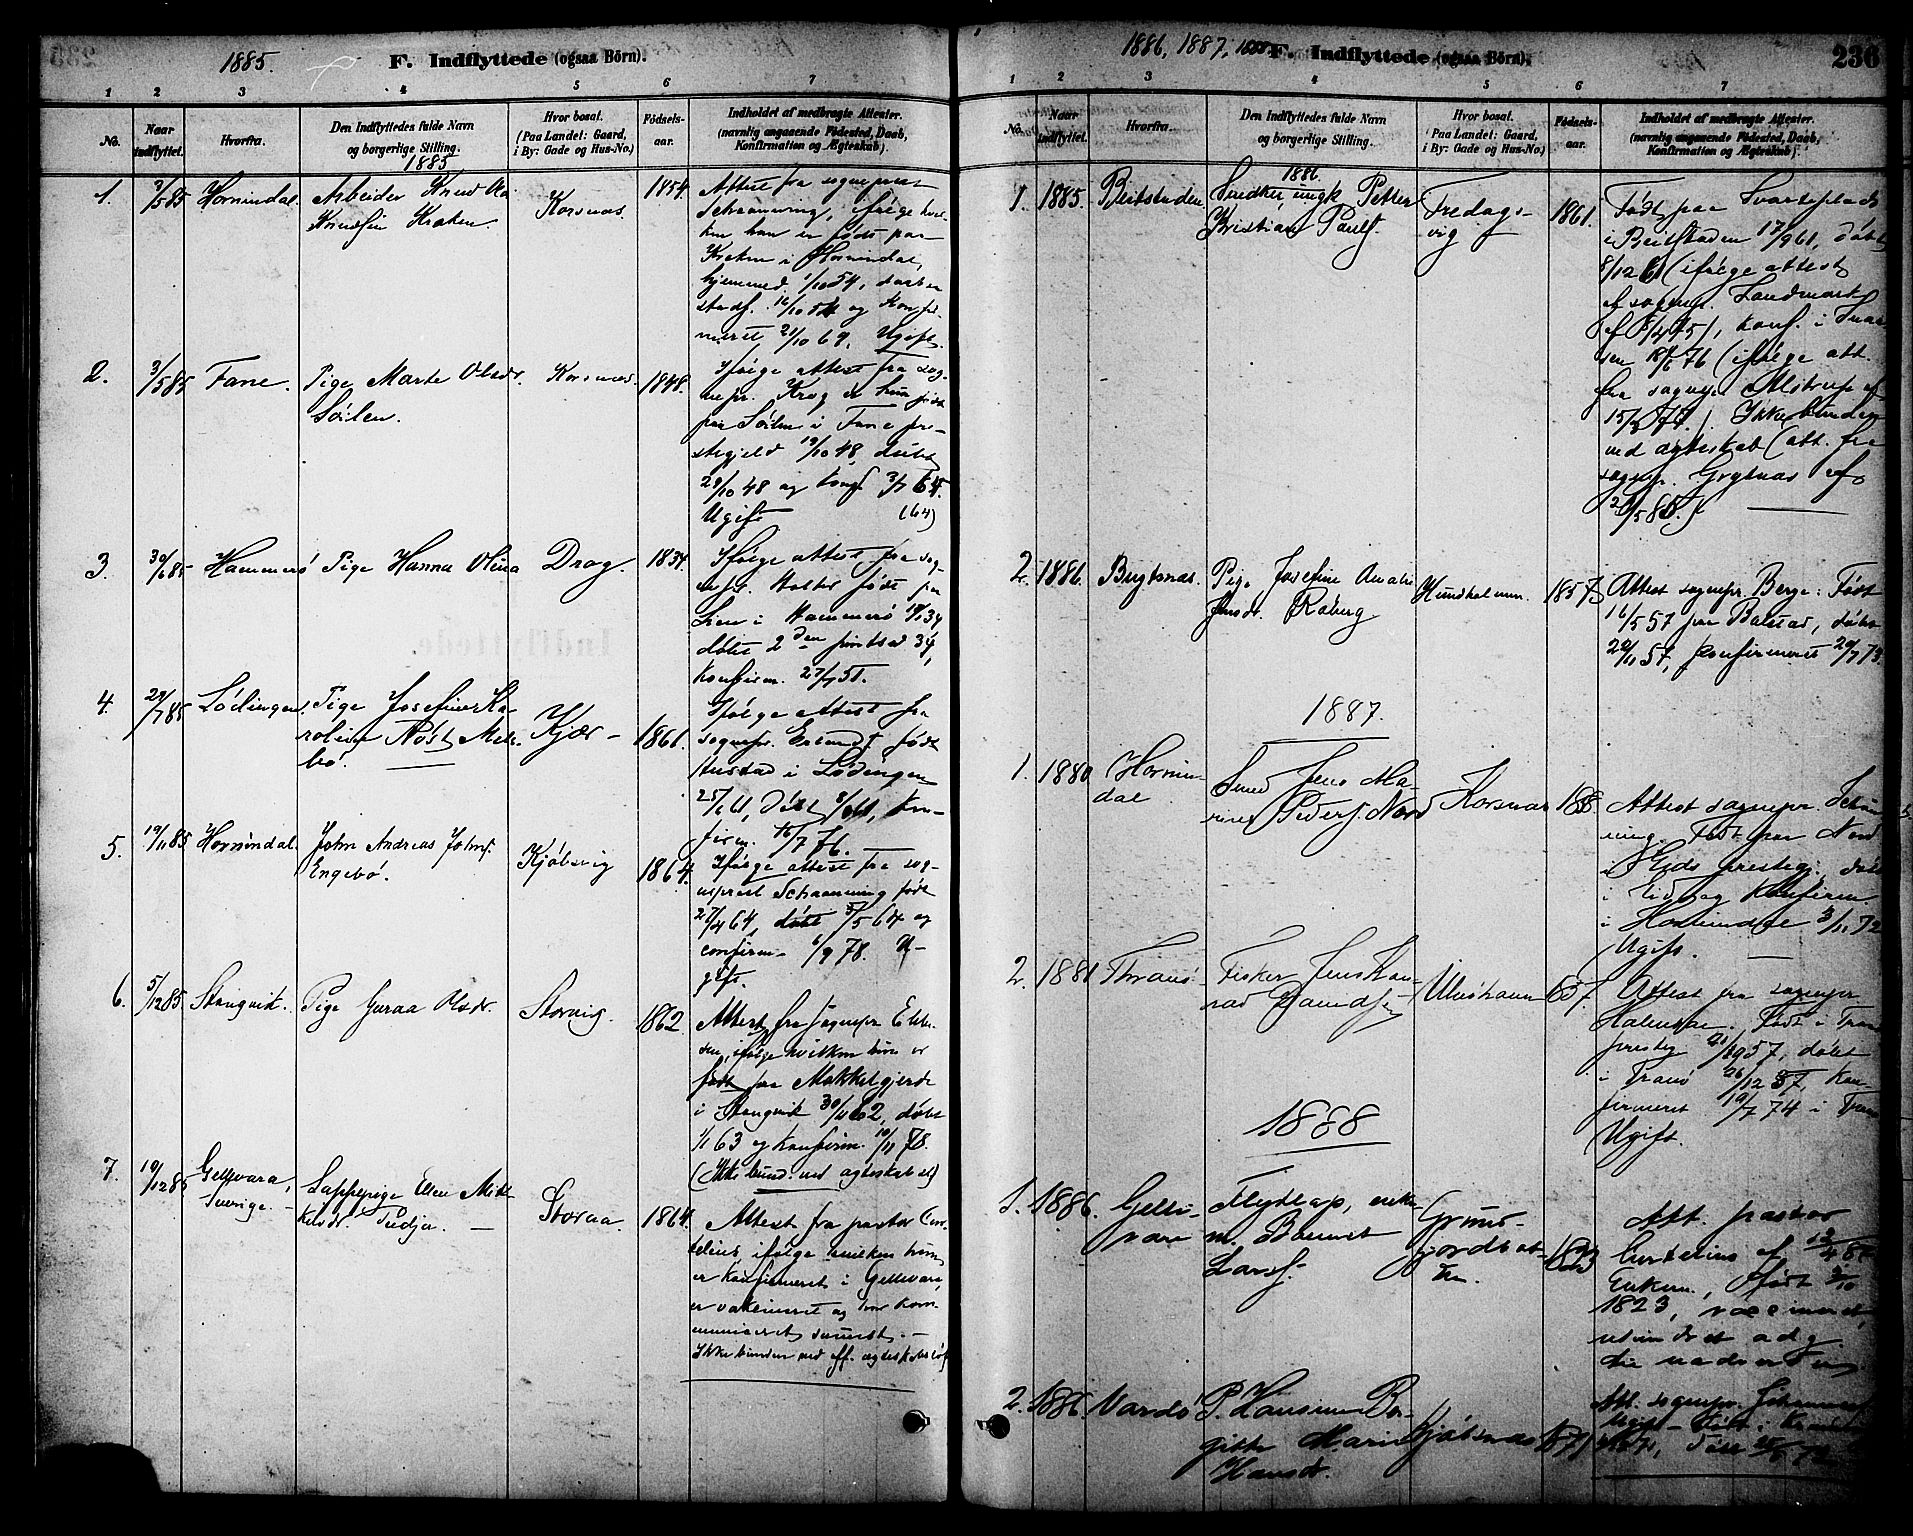 1885.
F. Indflyttede (ogsaa Börn).
1 2 3 4 5 6 7
No.
Naar indflyttet.
Hvorfra.
Den Indflyttedes fulde Navn
og borgerlige Stilling.
Hvor bosat.
(Paa Landet: Gaard,
i By: Gade og Hus-No.)
Fødsels-
aar.
Indholdet af medbragte Attester.
(navnlig angaaende Födested, Daab,
Konfirmation og Ægteskab).
1885
1. 3/5 85 Hornindal Arbeider Knud
Knudsen Kraken. Korsnas. 1854.
Attest fra sogneprest
Schaanning, ifølge hvil-
ken han er født paa
Kraken i Hornindal,
hjemmed. 1/10 54, daaben
stadf. 16/10 54 og Konfir-
meret 21/10 69. Ugift.
2. 3/5 85 Fane. Pige Marte Olsdr.
Söilen. Korsnas. 1848.
Ifølge attest fra sog-
nepr. Krog er hun født
paa Söilen i Fane pre-
stegjeld 19/10 48, døbt
29/10 48 og konf. 3/7 64.
Ugift (64)
3. 30/6 85 Hammerö Pige Hanna Olina Drag. 1834.
Ifølge attest fra sog-
nepr. født paa
i Hammerö 34
döbt 2den juledag 34,
Konfirm. 27/7 51.
4. 29/7 85 Lödingen. Pige Josefine Ka-
roline Nöst Mele-
bö. Kjær - 1861.
Ifølge attest fra
sognepr. født
i Lödingen
25/1 61, Döbt 61, Kon-
firm. 16/7 76.
5. 19/11 85 Hornindal. John Andreas Johns.
Engebö. Kjöbsvig 1864.
Ifølge attest fra sog-
neprest Schaanning født
27/4 64, döbt 5/5 64 og
confirm. 6/9 78. U-
gift.
6. 5/12 85 Stangvik. Pige Guraa Olsdr. Storvig. 1862.
Attest fra sognepr.
ifølge hvilken hun er
født paa Mokkelgjerde
i Stangvik 30/11 62, döbt
1/1 63 og Konfirm. 10/11 78.
(Ikke bund. ved ægteskabet)
7. 19/12 85 Gellevara,
Sverige. - Lappepige Ellen Mik-
kelsdr. - Storaa. 1864.
Attest fra pastor Cur-
telius ifølge hvilken hun
er konfirmeret i Gellevara,
er vakcineret og har kom-
municeret senest. -
Ikke bunden ved
1886, 1887, 1888. F. Indflyttede (ogsaa Börn).
236
1 2 3 4 5 6 7
No.
Naar
indflyttet.
Hvorfra.
Den Indflyttedes fulde Navn
og borgerlige Stilling.
Hvor bosat.
(Paa Landet: Gaard,
i By: Gade og Hus-No.)
Födsels-
aar.
Indholdet af medbragte Attester
(navnlig angaaende Födested, Daab,
Konfirmation og Ægteskab).
1886.
1. 1885. Beitstaden Snedker, ungk. Petter
Kristian Pauls. Fredags-
vig 1861.
Født paa Svarteplads
i Beitstaden 17/9 61, döbt
8/12 61 (ifølge attest
af sognepr. Landmark
af 8/4 75), konf. i
76 (ifølge att.
fra sognepr. Alstrup af
15/ 77.) Ikke bunden
ved ægteskab (att. fra
sognepr. Grytnas af
/5 85.)
2. 1886. Pige Josefine Amalie
Jensdr. Röberg Hundholmen. 1857
Attest sognepr. Berge: Født
16/5 57 paa Balstad, döbt
22/11 57, konfirmeret 20/7 73.
1887.
1. 1880 Hornin-
dal Smed Jens Ma-
rius Peders. Nord Korsnas
Attest sognepr. Schan-
ning. Født paa Nord
i Eids presteg. döbt
i Eid og Konfirm.
i Hornindal 3/11 72
Ugift.
2. 1881 Tranö Fisker Jens Kon-
rad Ulvshavn 57.
Attest fra sognepr.
Født i Tran
presteg 57, döbt
i Tranö 26/12 57, Kon-
firmeret 19/7 74 i Tran
Ugift.
1888
1. 1886. Gelli-
vare Flytlap, enke-
m. Lars. Grund-
fjordbot-
ten. 1823
Att. pastor
Curtelius af 12/4 87
Enkem., født
1823, vaccineret,
2. 1886. Vardö P. Hansine Bir-
gitte Marie
Hansdr. Kjöbsnas 1871
Att. sognepr. Johannes
Ugift - Født
71, Döbt 72